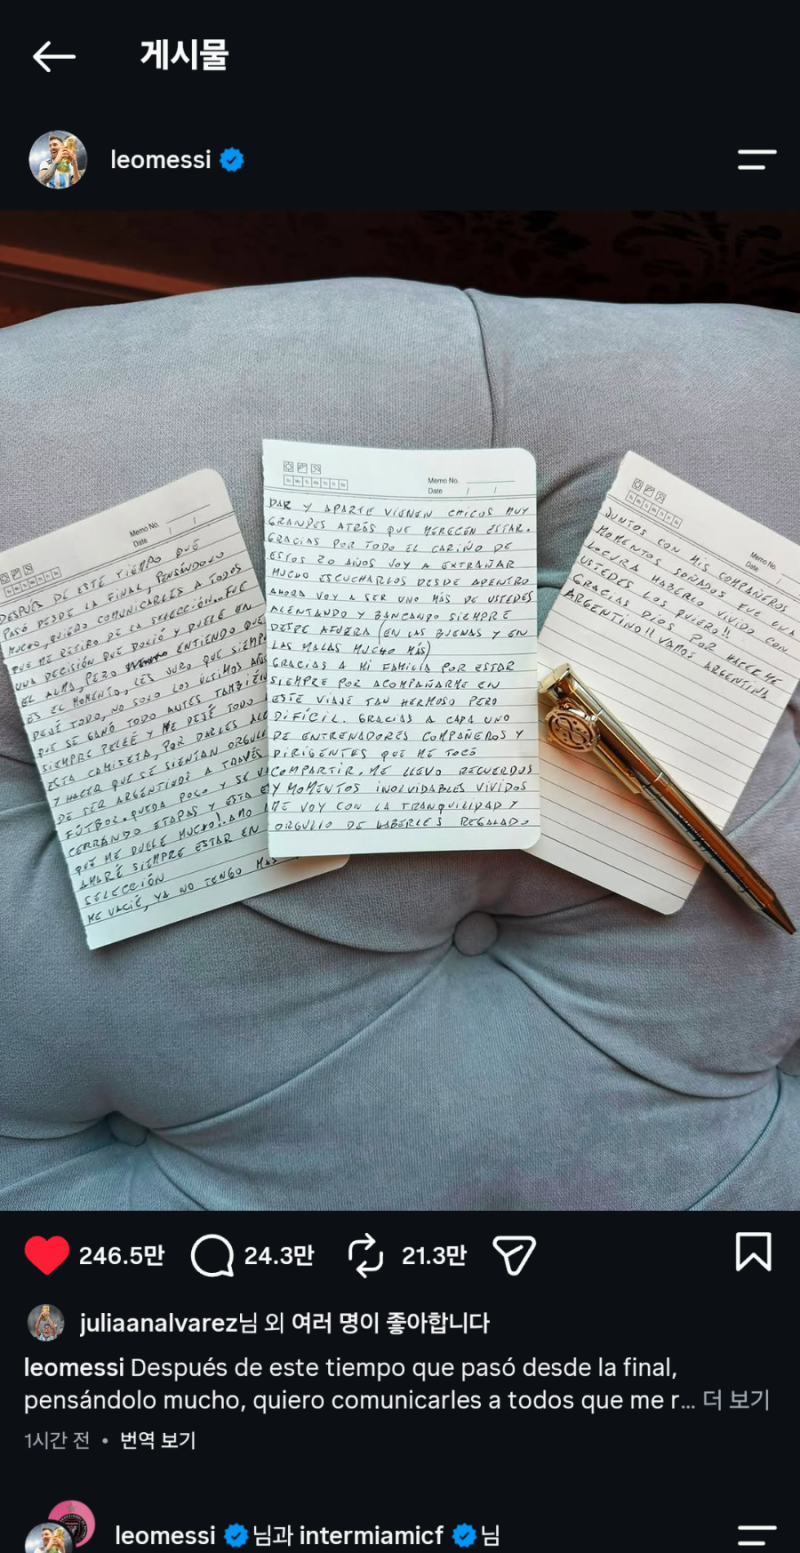 게시물
leomessi
Memo No.
Date / /
DESPUÉS DE ESTE TIEMPO QUE
PASÓ DESDE LA FINAL, PENSÁNDOLO
MUCHO, QUIERO COMUNICARLES A TODOS
QUE ME RETIRO DE LA SELECCIÓN. FUE
UNA DECISIÓN QUE DOLIÓ Y DUELE EN
EL ALMA, PERO ENTIENDO QUE
ES EL MOMENTO, LES JURO QUE SIEMP
DEJÉ TODO, NO SOLO LOS ÚLTIMOS AÑO
QUE SE GANÓ TODO ANTES TAMBIÉN
SIEMPRE PELEÉ Y ME DEJÉ TODO
ESTA CAMISETA, POR DARLES ALE
Y HACER QUE SE SIENTAN ORGULL
DE SER ARGENTINOS A TRAVÉS
FÚTBOL. QUEDA POCO Y SE V
CERRANDO ETAPAS Y ESTA E
QUE ME DUELE MUCHO! AMO
AMARÉ SIEMPRE ESTAR EN
SELECCIÓN
ME VACIÉ, YA NO TENGO MÁS
Memo No.
Date / /
DAR Y APARTE VIENEN CHICOS MUY
GRANDES ATRÁS QUE MERECEN ESTAR.
GRACIAS POR TODO EL CARIÑO DE
ESTOS 20 AÑOS VOY A EXTRAÑAR
MUCHO ESCUCHARLOS DESDE ADENTRO
AHORA VOY A SER UNO MÁS DE USTEDES
ALENTANDO Y BANCANDO SIEMPRE
DESDE AFUERA (EN LAS BUENAS Y EN
LAS MALAS MUCHO MÁS)
GRACIAS A MI FAMILIA POR ESTAR
SIEMPRE POR ACOMPAÑARME EN
ESTE VIAJE TAN HERMOSO PERO
DIFÍCIL. GRACIAS A CADA UNO
DE ENTRENADORES COMPAÑEROS Y
DIRIGENTES QUE ME TOCÓ
COMPARTIR. ME LLEVO RECUERDOS
Y MOMENTOS INOLVIDABLES VIVIDOS
ME VOY CON LA TRANQUILIDAD Y
ORGULLO DE HABERLES REGALADO
Memo No.
Date / /
JUNTOS CON MIS COMPAÑEROS
MOMENTOS SOÑADOS FUE UNA
LOCURA HABERLO VIVIDO CON
USTEDES LOS QUIERO!!
GRACIAS DIOS POR HACERME
ARGENTINO!! VAMOS ARGENTINA
246.5만 24.3만 21.3만
juliaanalvarez님 외 여러 명이 좋아합니다
leomessi Después de este tiempo que pasó desde la final,
pensándolo mucho, quiero comunicarles a todos que me r... 더 보기
1시간 전 • 번역 보기
leomessi 님과 intermiamicf 님